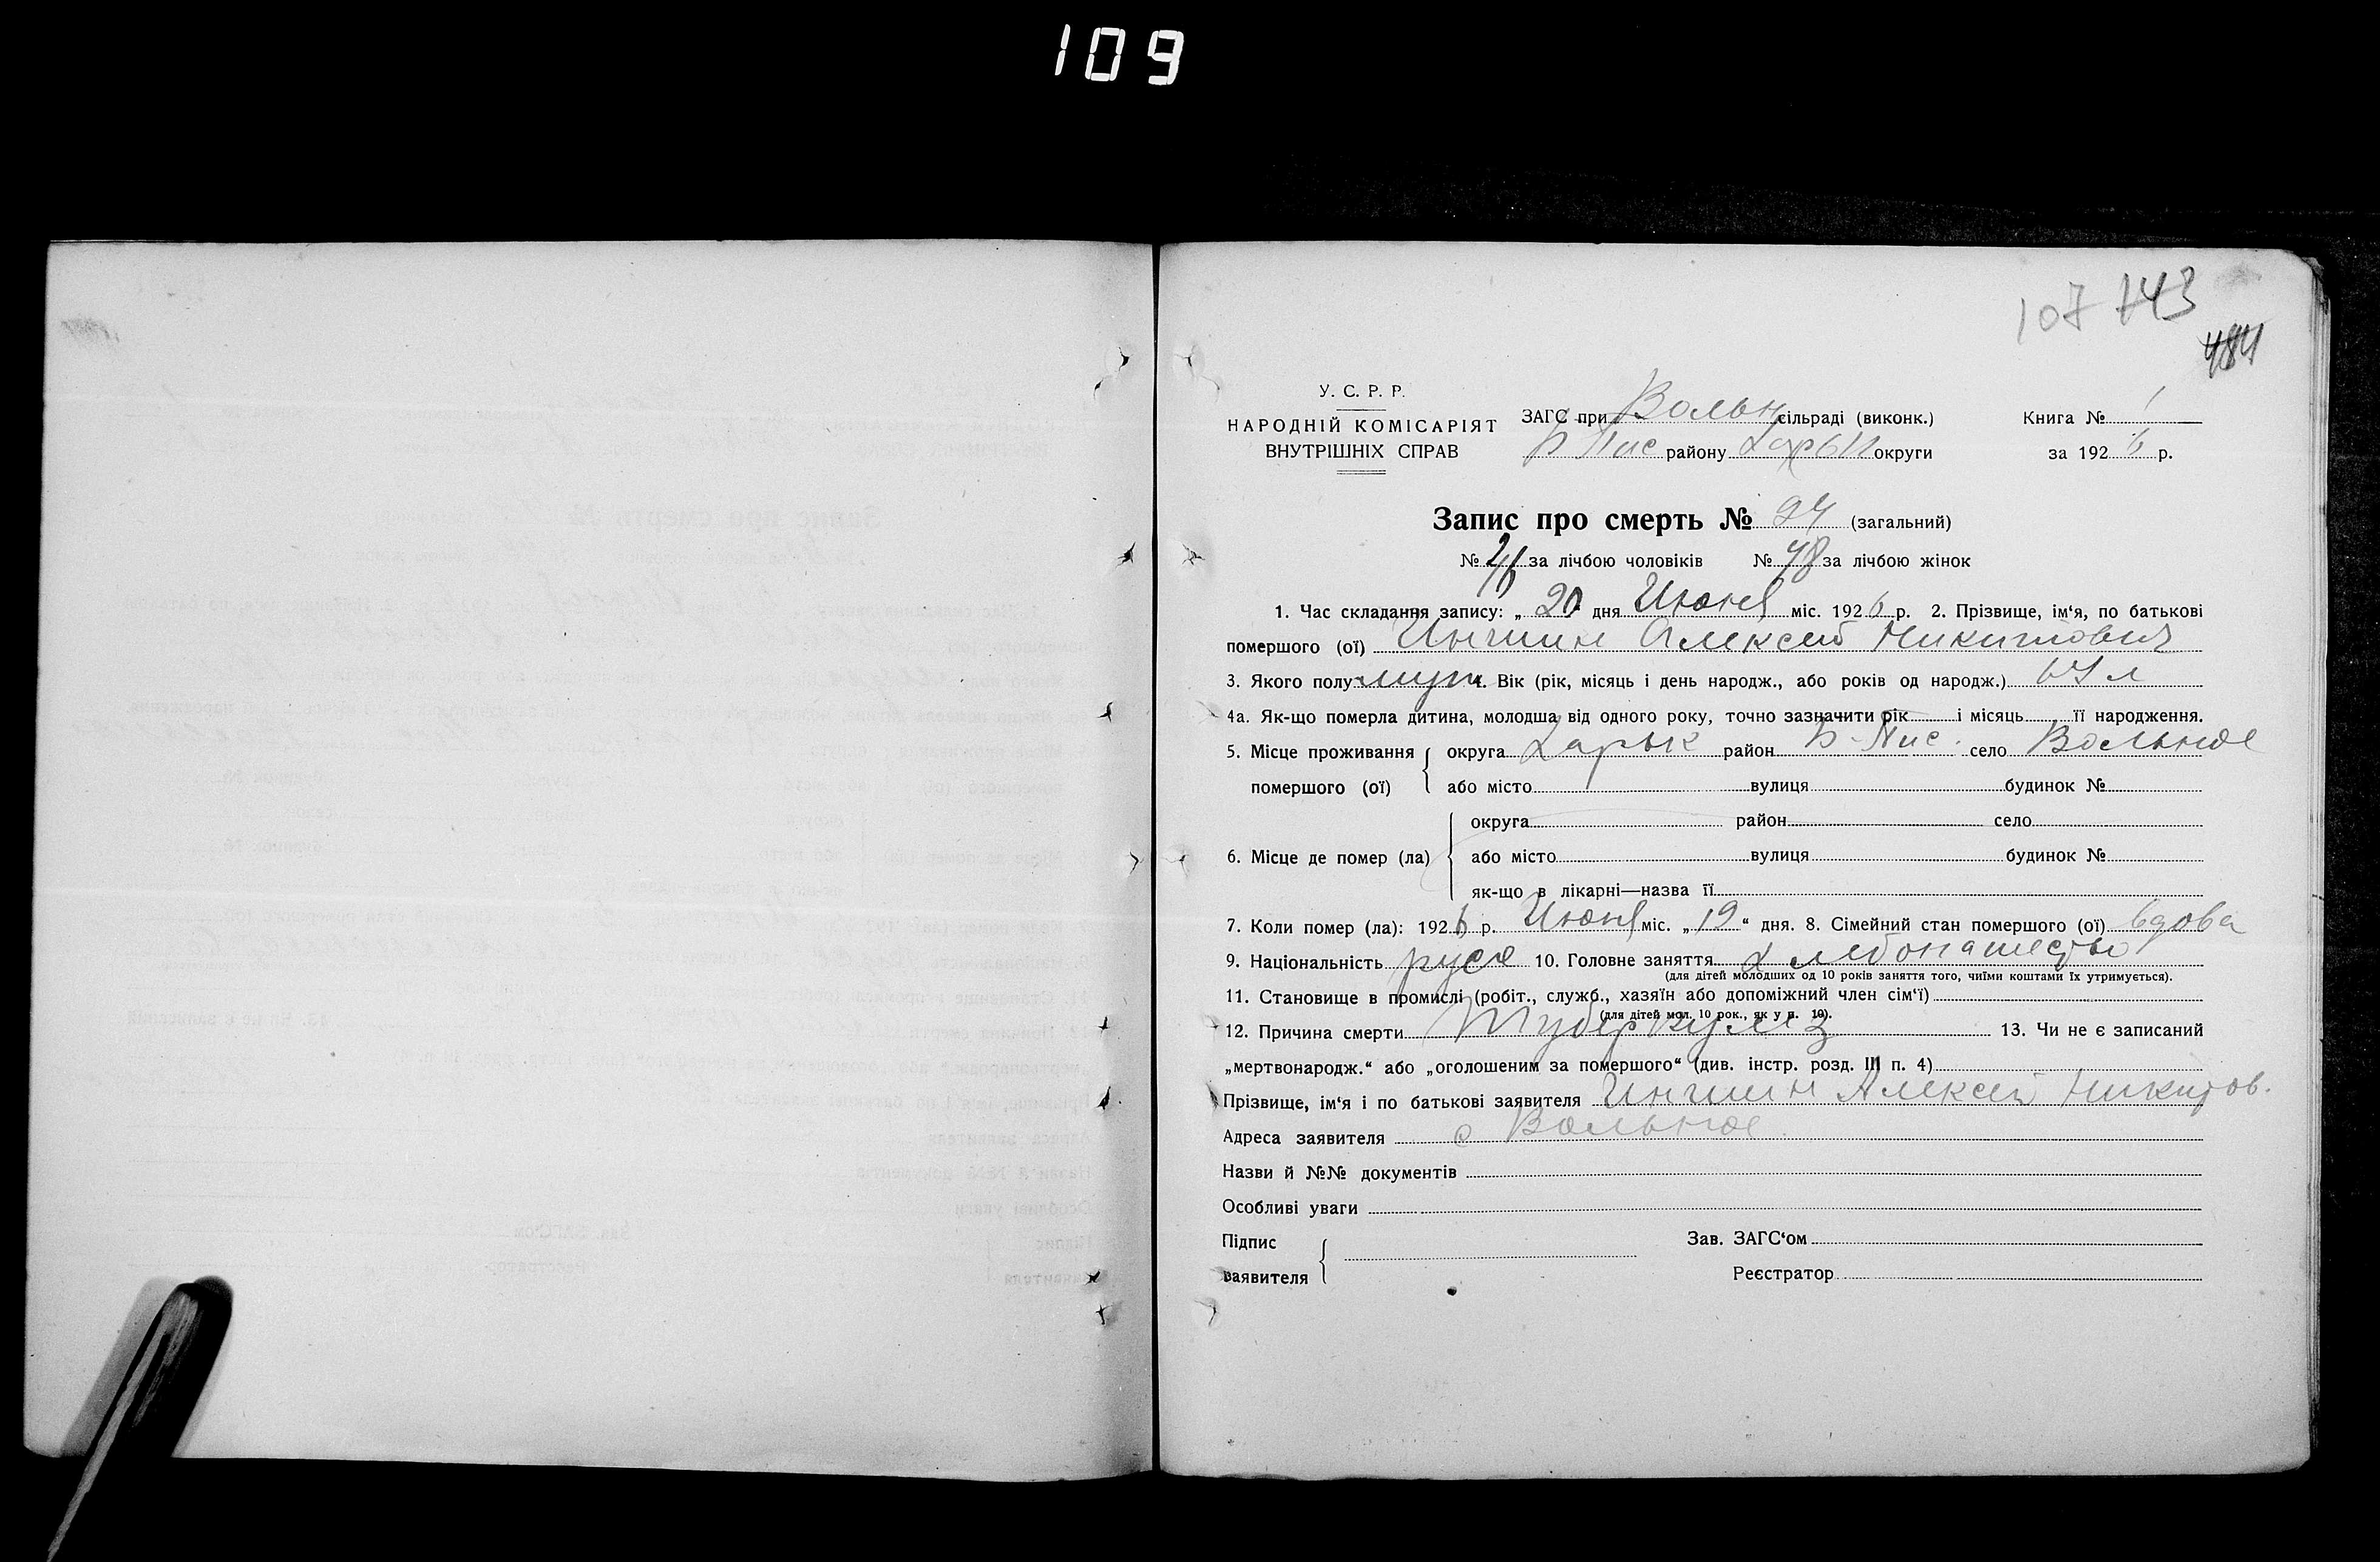 109
107 143
484
У. С. Р. Р.
НАРОДНІЙ КОМІСАРІЯТ
ВНУТРІШНІХ СПРАВ
ЗАГС при Вольн сільраді (виконк.)
Б Пис району Харьк округи
Книга № 1
за 192 6 р.
Запис про смерть № 94 (загальний)
№ 46 за лічбою чоловіків № 48 за лічбою жінок
1. Час складання запису: „ 20 дня Июня міс. 192 6 р. 2. Прізвище, ім‘я, по батькові
помершого (ої) Алексей Никитович
3. Якого полу муж 4. Вік (рік, місяць і день народж., або років од народж.) л
4а. Як-що померла дитина, молодша від одного року, точно зазначити рік і місяць її народження.
5. Місце проживання помершого (ої) округа Харьк район Б-Пис. село Вольное
або місто вулиця будинок №
6. Місце де помер (ла) округа район село
або місто вулиця будинок №
як-що в лікарні—назва її
7. Коли помер (ла): 192 6 р. Июня міс. „ 19 “ дня. 8. Сімейний стан помершого (ої) вдова
9. Національність 10. Головне заняття хлебопашество
(для дітей молодших од 10 років заняття того, чиїми коштами їх утримується).
11. Становище в промислі (робіт., служб., хазяїн або допоміжний член сім‘ї)
(для дітей мол. 10 рок., як у п. 10).
12. Причина смерти Туберкулез 13. Чи не є записаний
„мертвонародж.“ або „оголошеним за помершого“ (див. інстр. розд. III п. 4)
Прізвище, ім‘я і по батькові заявителя Алексей Никитов.
Адреса заявителя с Вольное
Назви й №№ документів
Особливі уваги
Підпис
заявителя
Зав. ЗАГС‘ом
Реєстратор